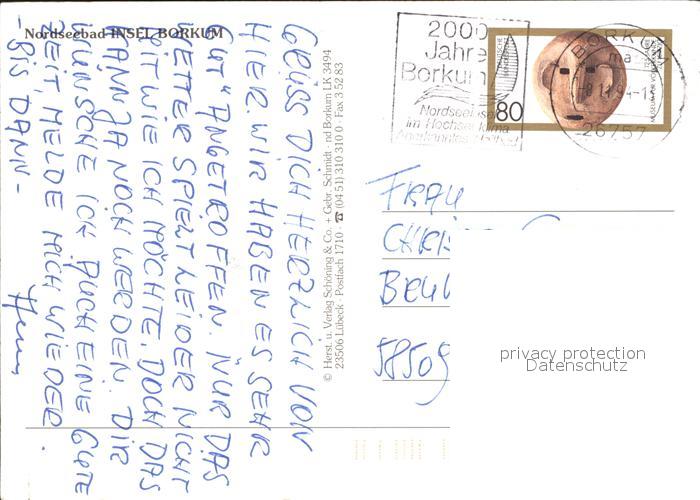 Nordseebad INSEL BORKUM
GRÜSS DICH HERZLICH VON
HIER. WIR HABEN ES SEHR
GUT "ANGETROFFEN. NUR DAS
WETTER SPIELT LEIDER NICHT
MIT WIE ICH MÖCHTE. DOCH DAS
KANN JA NOCH WERDEN. DIR
WÜNSCHE ICH AUCH EINE GUTE
ZEIT, MELDE MICH WIEDER.
-BIS DANN-
© Herst. u. Verlag Schöning & Co. + Gebr. Schmidt · nd Borkum LK 3494
23506 Lübeck · Postfach 1710 · ☎ (04 51) 310 310 0 · Fax 3 52 83
2000
Jahre
Borkum
Nordseeinsel
im Hochseeklima
80
BORKUM
26757
FRAU
CHRI
58509
privacy protection
Datenschutz